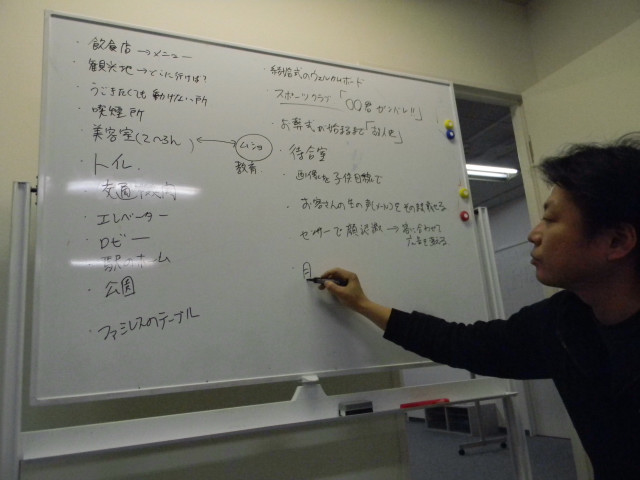 ・飲食店→メニュー
・観光地→どこに行けば?
・うごきたくても動けない所
・喫煙所
・美容室(2〜3h)
ムショ
教育
・トイレ
・交通 内
・エレベーター
・ロビー
・駅のホーム
・公園
・ファミレスのテーブル
・結婚式のウェルカムボード
・スポーツクラブ「〇〇君ガンバレ!!」
・お葬式が始まるまで「故人史」
・待合室
・画像を子供目線で
・お客さんの生の声(メール)をその場で
・センサーで顔認識→客に合わせて
広告を変える
・目